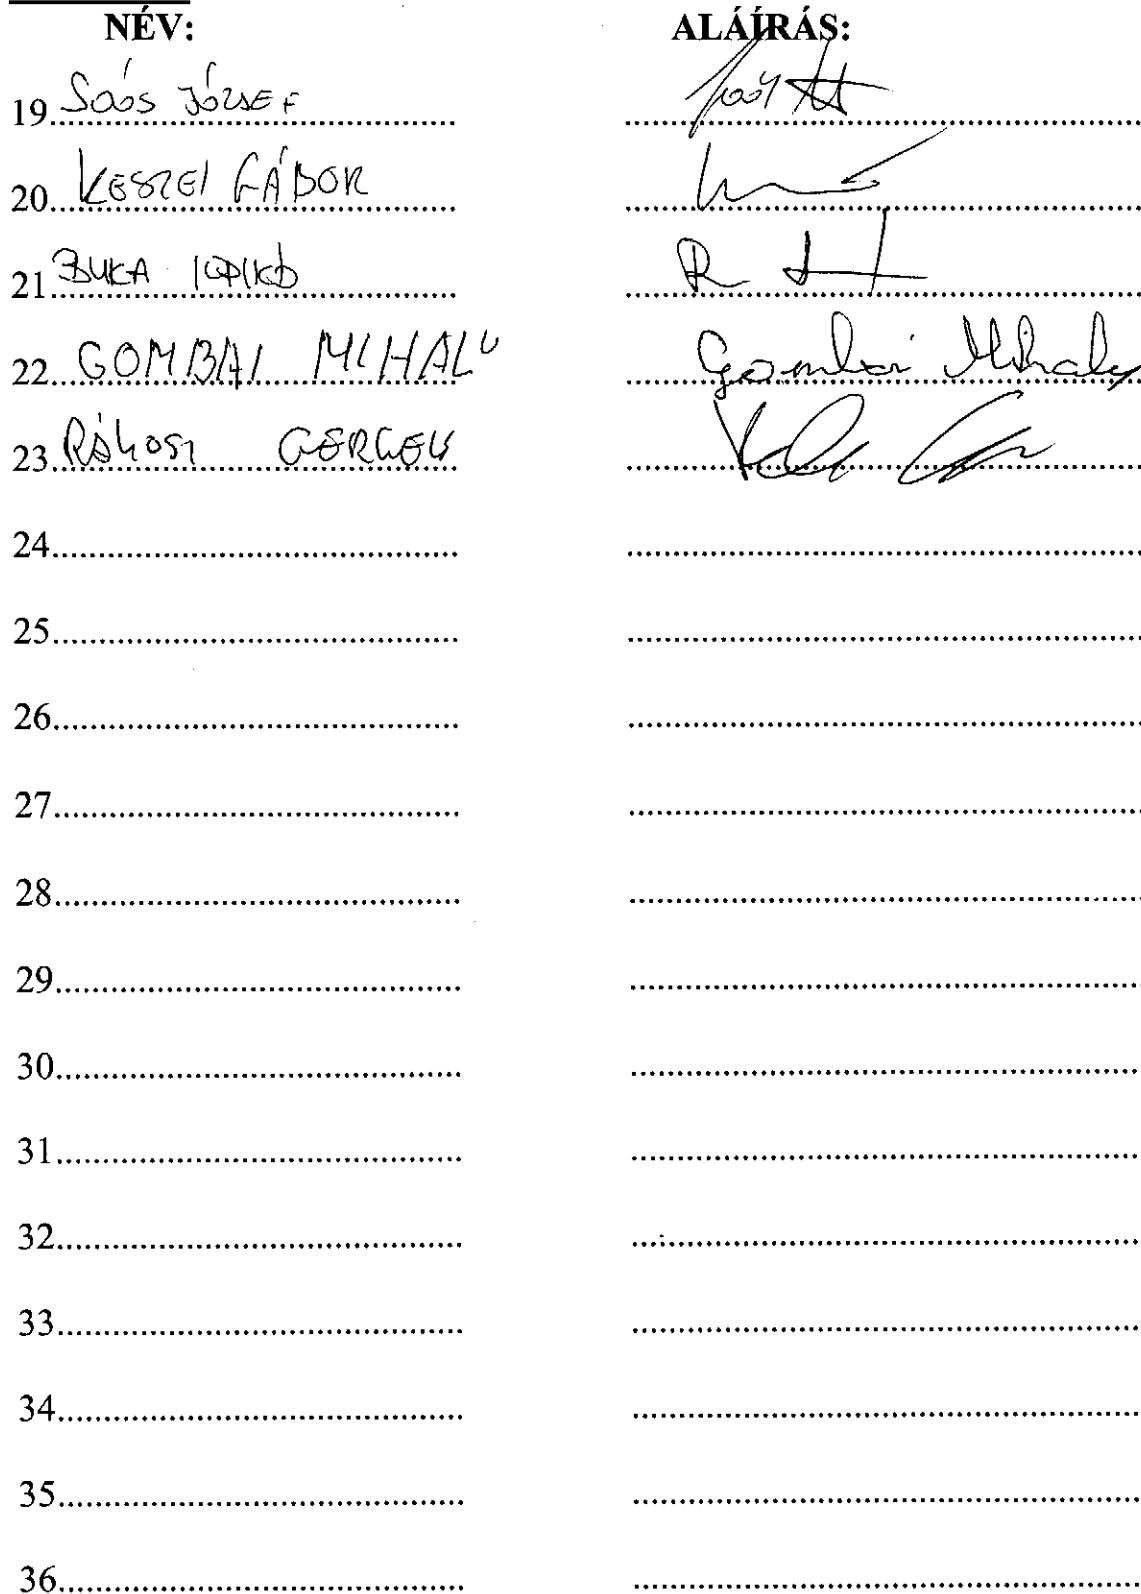 NÉV: ALÁÍRÁS:
19 Soós József
20 KESZEI GÁBOR
21 BUKA ILDIKÓ
22 GOMBAI MIHALY Gombai Mihaly
23 RÁKOSI GERGELY
24
25
26
27
28
29
30
31
32
33
34
35
36